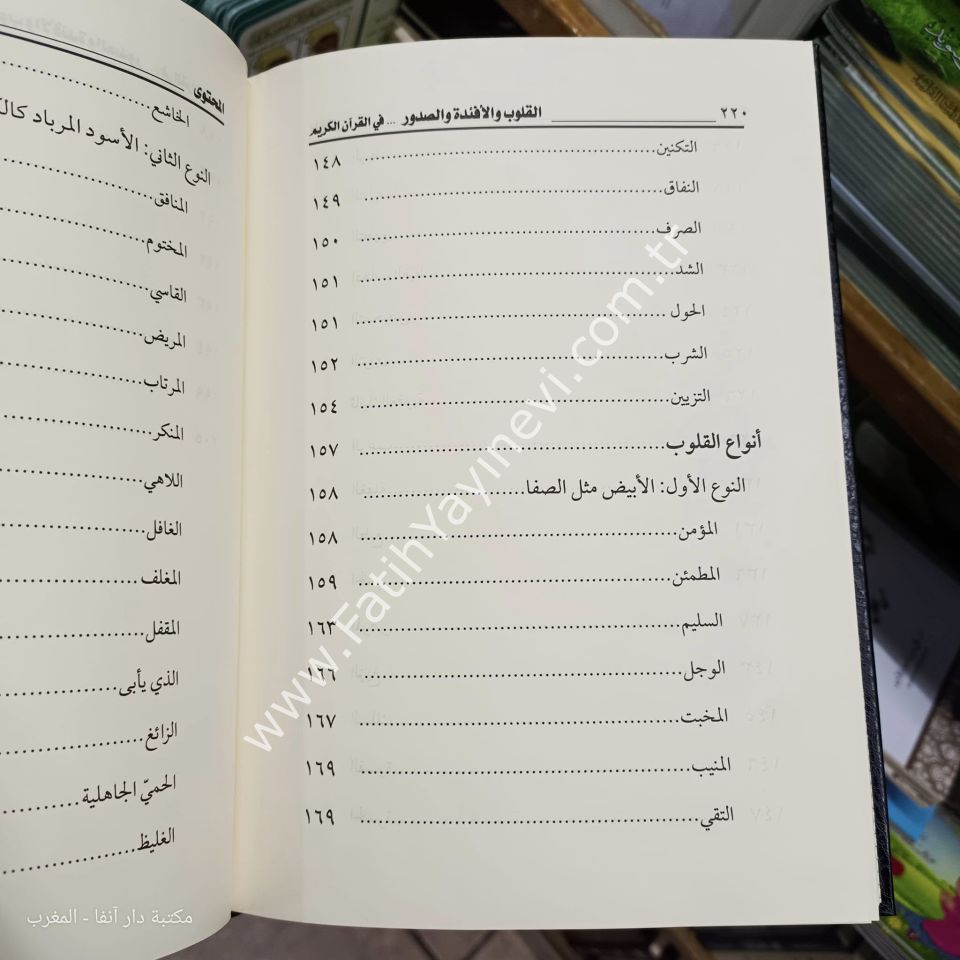 ٢٢٠ القلوب والأفئدة والصدور ... في القرآن الكريم
التكنين ١٤٨
النفاق ١٤٩
الصرف ١٥٠
الشد ١٥١
الحول ١٥١
الشرب ١٥٢
التزيين ١٥٤
أنواع القلوب ١٥٧
النوع الأول: الأبيض مثل الصفا ١٥٨
المؤمن ١٥٨
المطمئن ١٥٩
السليم ١٦٣
الوجل ١٦٦
المخبت ١٦٧
المنيب ١٦٩
التقي ١٦٩
المحتوى
الخاشع
النوع الثاني: الأسود المرباد
المنافق
المختوم
القاسي
المريض
المرتاب
المنكر
اللاهي
الغافل
المغلف
المقفل
الذي يأبى
الزائغ
الحميّ الجاهلية
الغليظ
www.FatihYayinevi.com.tr
مكتبة دار آنفا - المغرب